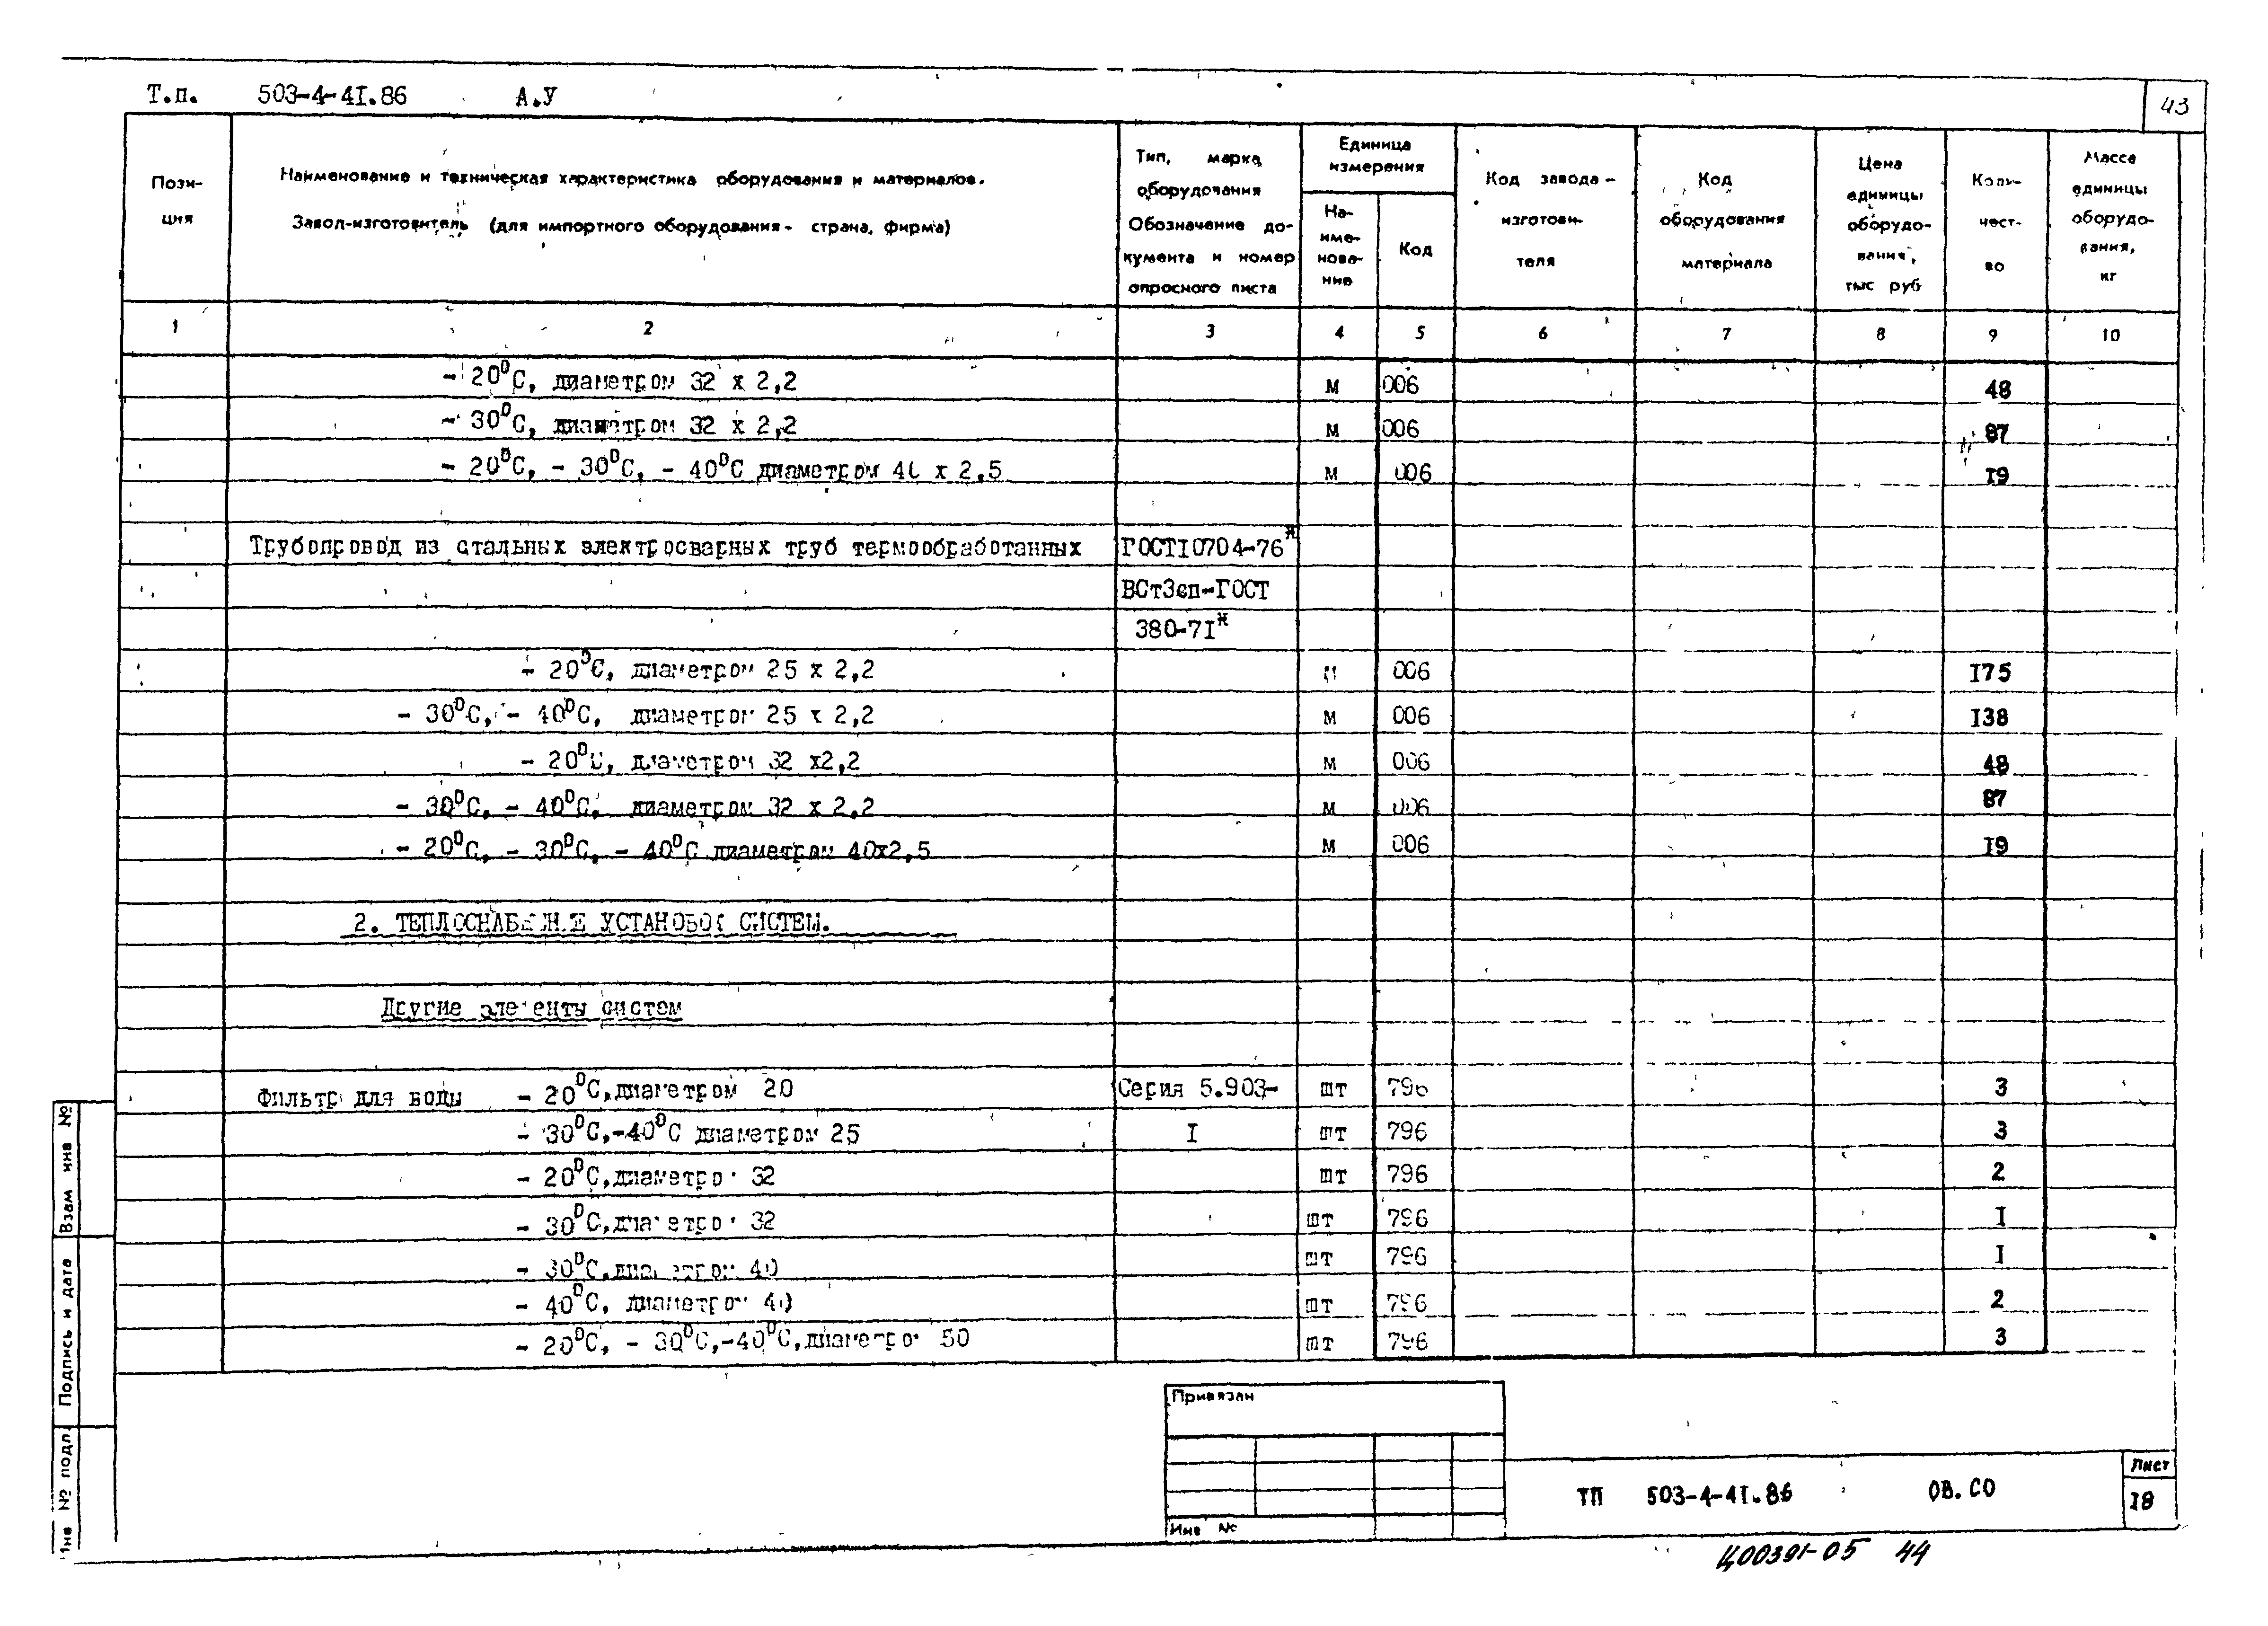 Т.п. 503-4-4I.86 А.У
43
Пози-
ция
Наименование и техническая характеристика оборудования и материалов.
Завод-изготовитель (для импортного оборудования - страна, фирма)
Тип, марка
оборудования
Обозначение до-
кумента и номер
опросного листа
Единица
измерения
На-
име-
нова-
ние
Код
Код завода-
изготови-
теля
Код
оборудования
материала
Цена
единицы
оборудо-
вания,
тыс руб
Коли-
чест-
во
Масса
единицы
оборудо-
вания,
кг
1 2 3 4 5 6 7 8 9 10
- 20⁰С, диаметром 32 х 2,2 м 006 48
- 30⁰С, диаметром 32 х 2,2 м 006 87
- 20⁰С, - 30⁰С, - 40⁰С диаметром 40 х 2,5 м 006 I9
Трубопровод из стальных электросварных труб термообработанных ГОСТI0704-76ж
ВСт3сп-ГОСТ
380-7Iж
- 20⁰С, диаметром 25 х 2,2 м 006 I75
- 30⁰С, - 40⁰С, диаметром 25 х 2,2 м 006 I38
- 20⁰С, диаметром 32 х2,2 м 006 48
- 30⁰С, - 40⁰С, диаметром 32 х 2,2 м 006 87
- 20⁰С, - 30⁰С, - 40⁰С диаметром 40х2,5 м 006 I9
2. ТЕПЛОСНАБЖЕНИЕ УСТАНОВОК СИСТЕМ.
Другие элементы систем
Фильтр для воды - 20⁰С,диаметром 20 Серия 5.903- шт 796 3
- 30⁰С,-40⁰С диаметром 25 I шт 796 3
- 20⁰С,диаметром 32 шт 796 2
- 30⁰С,диаметром 32 шт 796 I
- 30⁰С,диаметром 40 шт 796 I
- 40⁰С, диаметром 40 шт 796 2
- 20⁰С, - 30⁰С,-40⁰С,диаметром 50 шт 796 3
Взам инв №
Подпись и дата
Инв № подл.
Привязан
Инв №
ТП 503-4-4I.86 ОВ.СО
Лист
I8
Ц00391-05 44